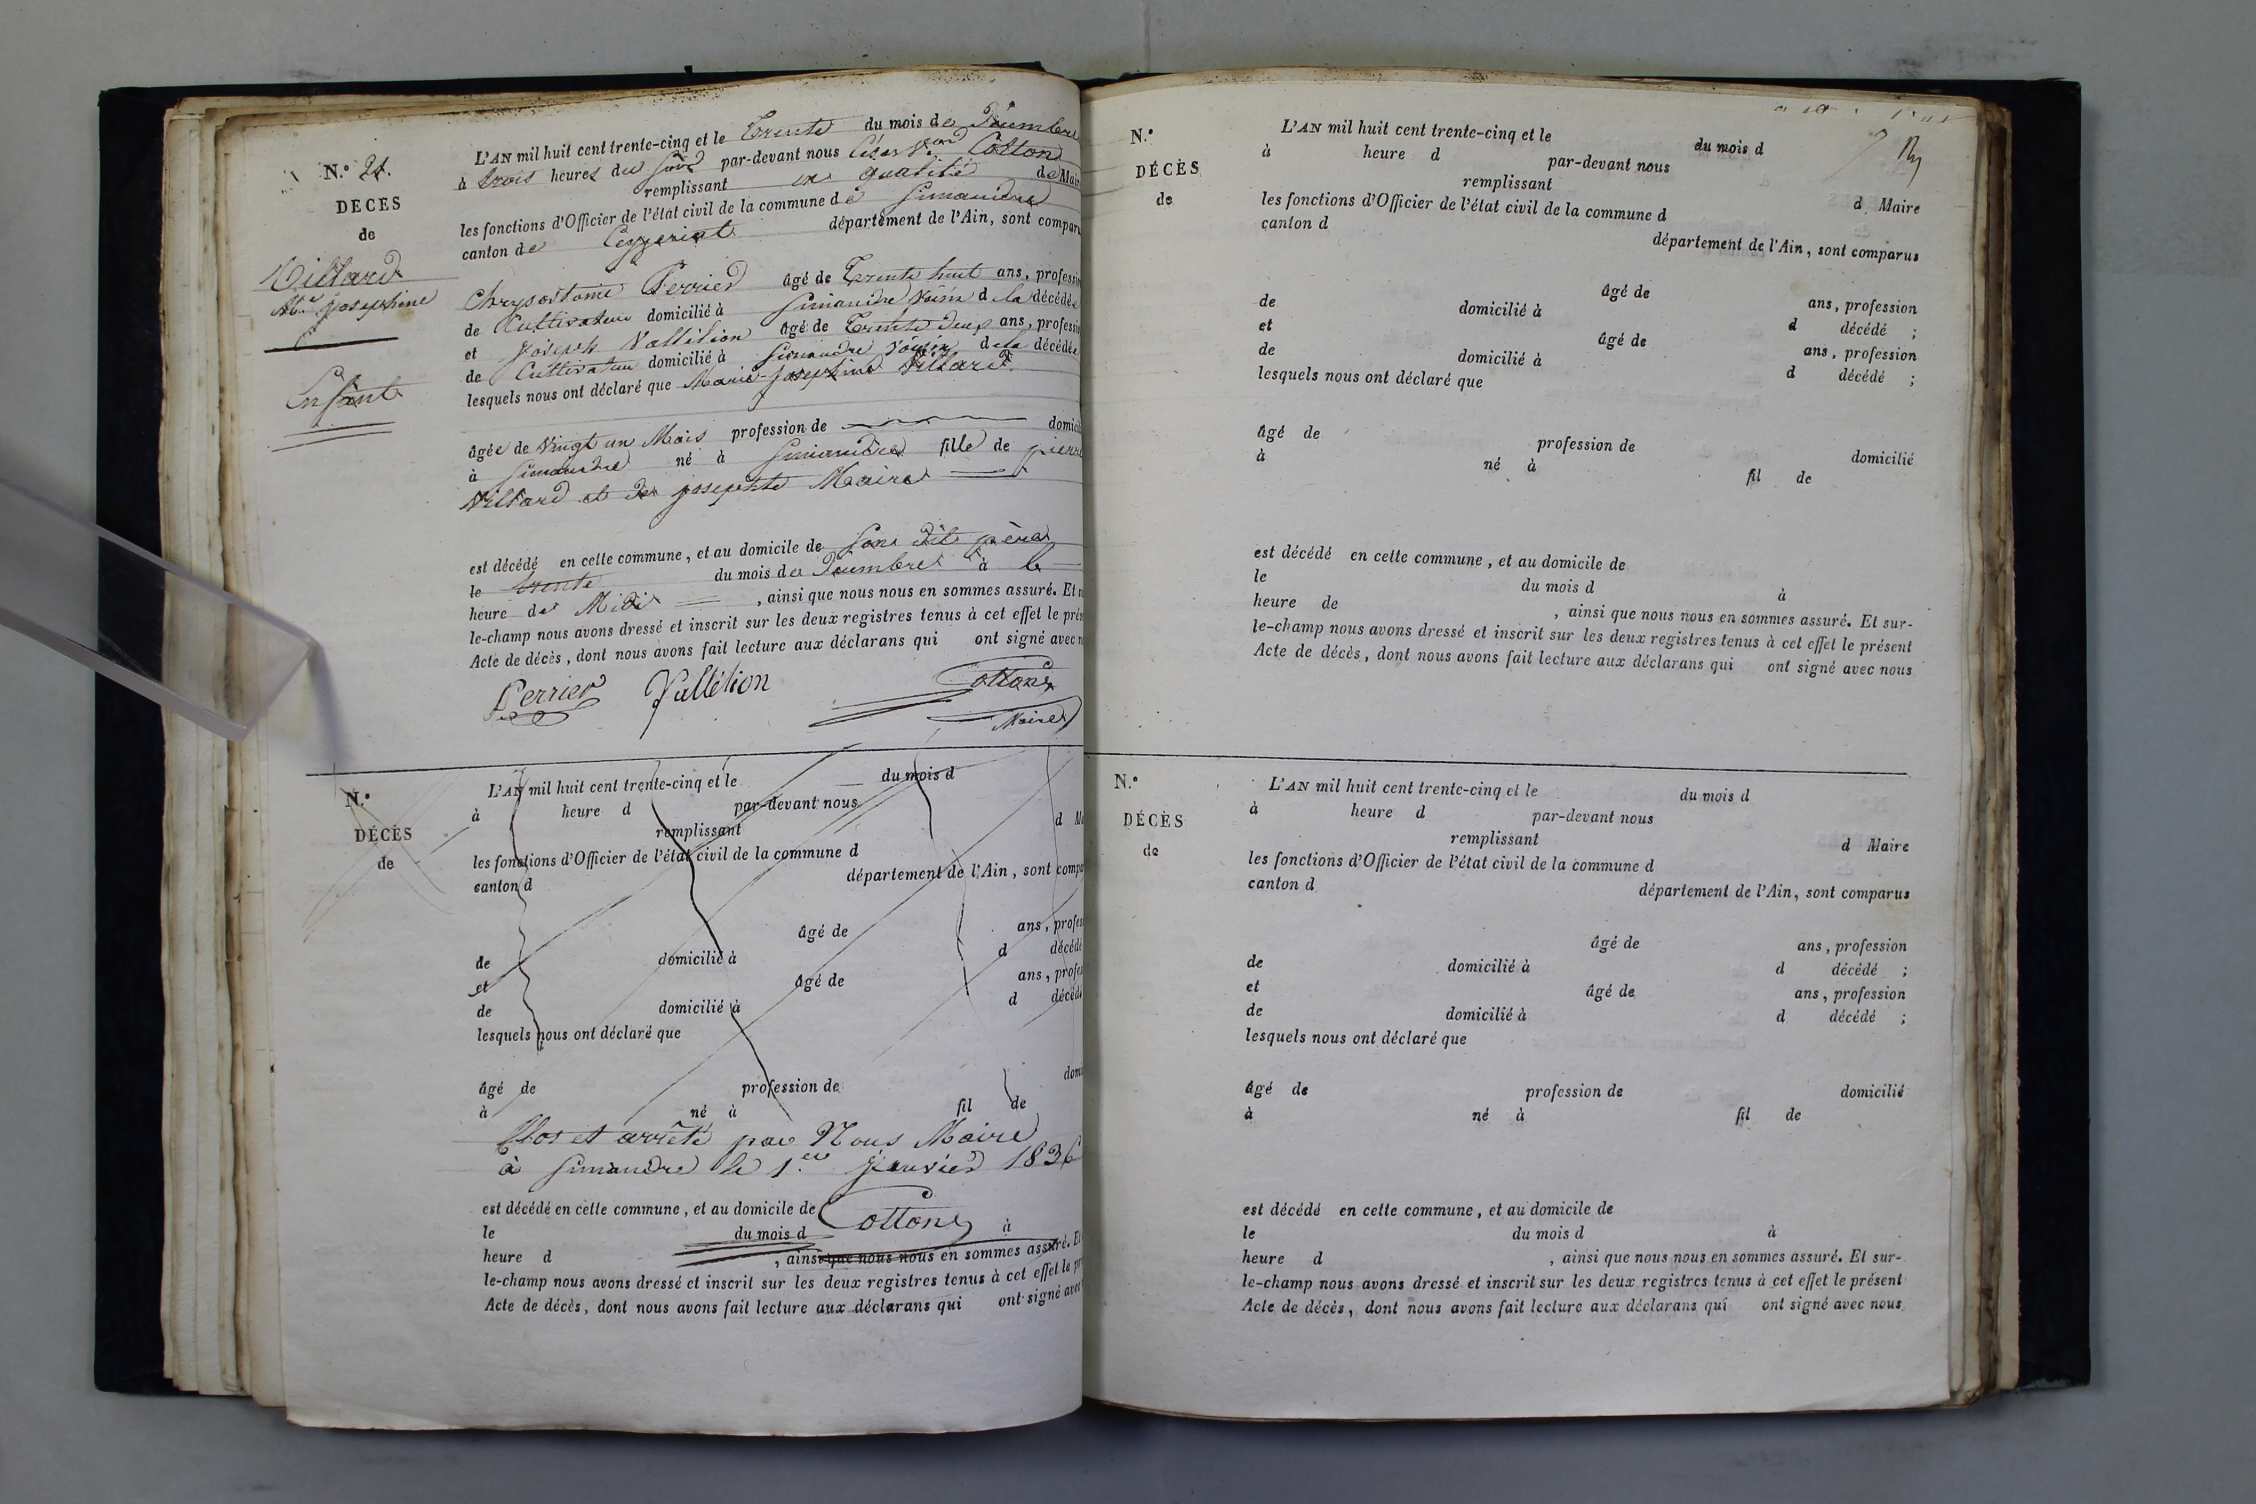 N.° 21.
DÉCÈS
de
Villard
M.ie Josephine
Enfant
L'AN mil huit cent trente-cinq et le Trente du mois de Decembre
à trois heures du soir par-devant nous César V.or Cotton
remplissant en qualité de Mair
les fonctions d'Officier de l'état civil de la commune de Simandre
canton de Ceyzeriat département de l'Ain, sont comparu
Chrysostome Perrier âgé de Trente huit ans, professio
de Cultivateur domicilié à Simandre voisin de la décédée
et Joseph Vallélion âgé de Trente deux ans, professio
de Cultivateur domicilié à Simandre voisin de la décédée
lesquels nous ont déclaré que Marie-Josephine Villard
âgée de vingt un Mois profession de domici
à Simandre né à Simandre fille de pierre
Villard et de Josephte Maire
est décédé en cette commune, et au domicile de son dit père
le trente du mois de Decembre à le
heure de Midi , ainsi que nous nous en sommes assuré. Et
le-champ nous avons dressé et inscrit sur les deux registres tenus à cet effet le pré
Acte de décès, dont nous avons fait lecture aux déclarans qui ont signé avec n
Perrier Vallélion Cotton
Maire
N.°
DÉCÈS
de
L'AN mil huit cent trente-cinq et le du mois d
à heure d par-devant nous
remplissant d Ma
les fonctions d'Officier de l'état civil de la commune d
canton d département de l'Ain, sont compa
âgé de ans, profes
de domicilié à d décédé
et âgé de ans, profes
de domicilié à d décédé
lesquels nous ont déclaré que
âgé de profession de dom
à né à fil de
Clos et arrêté par Nous Maire
à Simandre le 1.er Janvier 1836
est décédé en cette commune, et au domicile de Cotton
le du mois d à
heure d , ainsi que nous nous en sommes assuré. Et
le-champ nous avons dressé et inscrit sur les deux registres tenus à cet effet le pr
Acte de décès, dont nous avons fait lecture aux déclarans qui ont signé avec
N.°
DÉCÈS
de
L'AN mil huit cent trente-cinq et le du mois d
à heure d par-devant nous
remplissant d Maire
les fonctions d'Officier de l'état civil de la commune d
canton d département de l'Ain, sont comparus
âgé de ans, profession
de domicilié à d décédé ;
et âgé de ans, profession
de domicilié à d décédé ;
lesquels nous ont déclaré que
âgé de profession de domicilié
à né à fil de
est décédé en cette commune, et au domicile de
le du mois d à
heure de , ainsi que nous nous en sommes assuré. Et sur-
le-champ nous avons dressé et inscrit sur les deux registres tenus à cet effet le présent
Acte de décès, dont nous avons fait lecture aux déclarans qui ont signé avec nous
N.°
DÉCÈS
de
L'AN mil huit cent trente-cinq et le du mois d
à heure d par-devant nous
remplissant d Maire
les fonctions d'Officier de l'état civil de la commune d
canton d département de l'Ain, sont comparus
âgé de ans, profession
de domicilié à d décédé ;
et âgé de ans, profession
de domicilié à d décédé ;
lesquels nous ont déclaré que
âgé de profession de domicilié
à né à fil de
est décédé en cette commune, et au domicile de
le du mois d à
heure d , ainsi que nous nous en sommes assuré. Et sur-
le-champ nous avons dressé et inscrit sur les deux registres tenus à cet effet le présent
Acte de décès, dont nous avons fait lecture aux déclarans qui ont signé avec nous